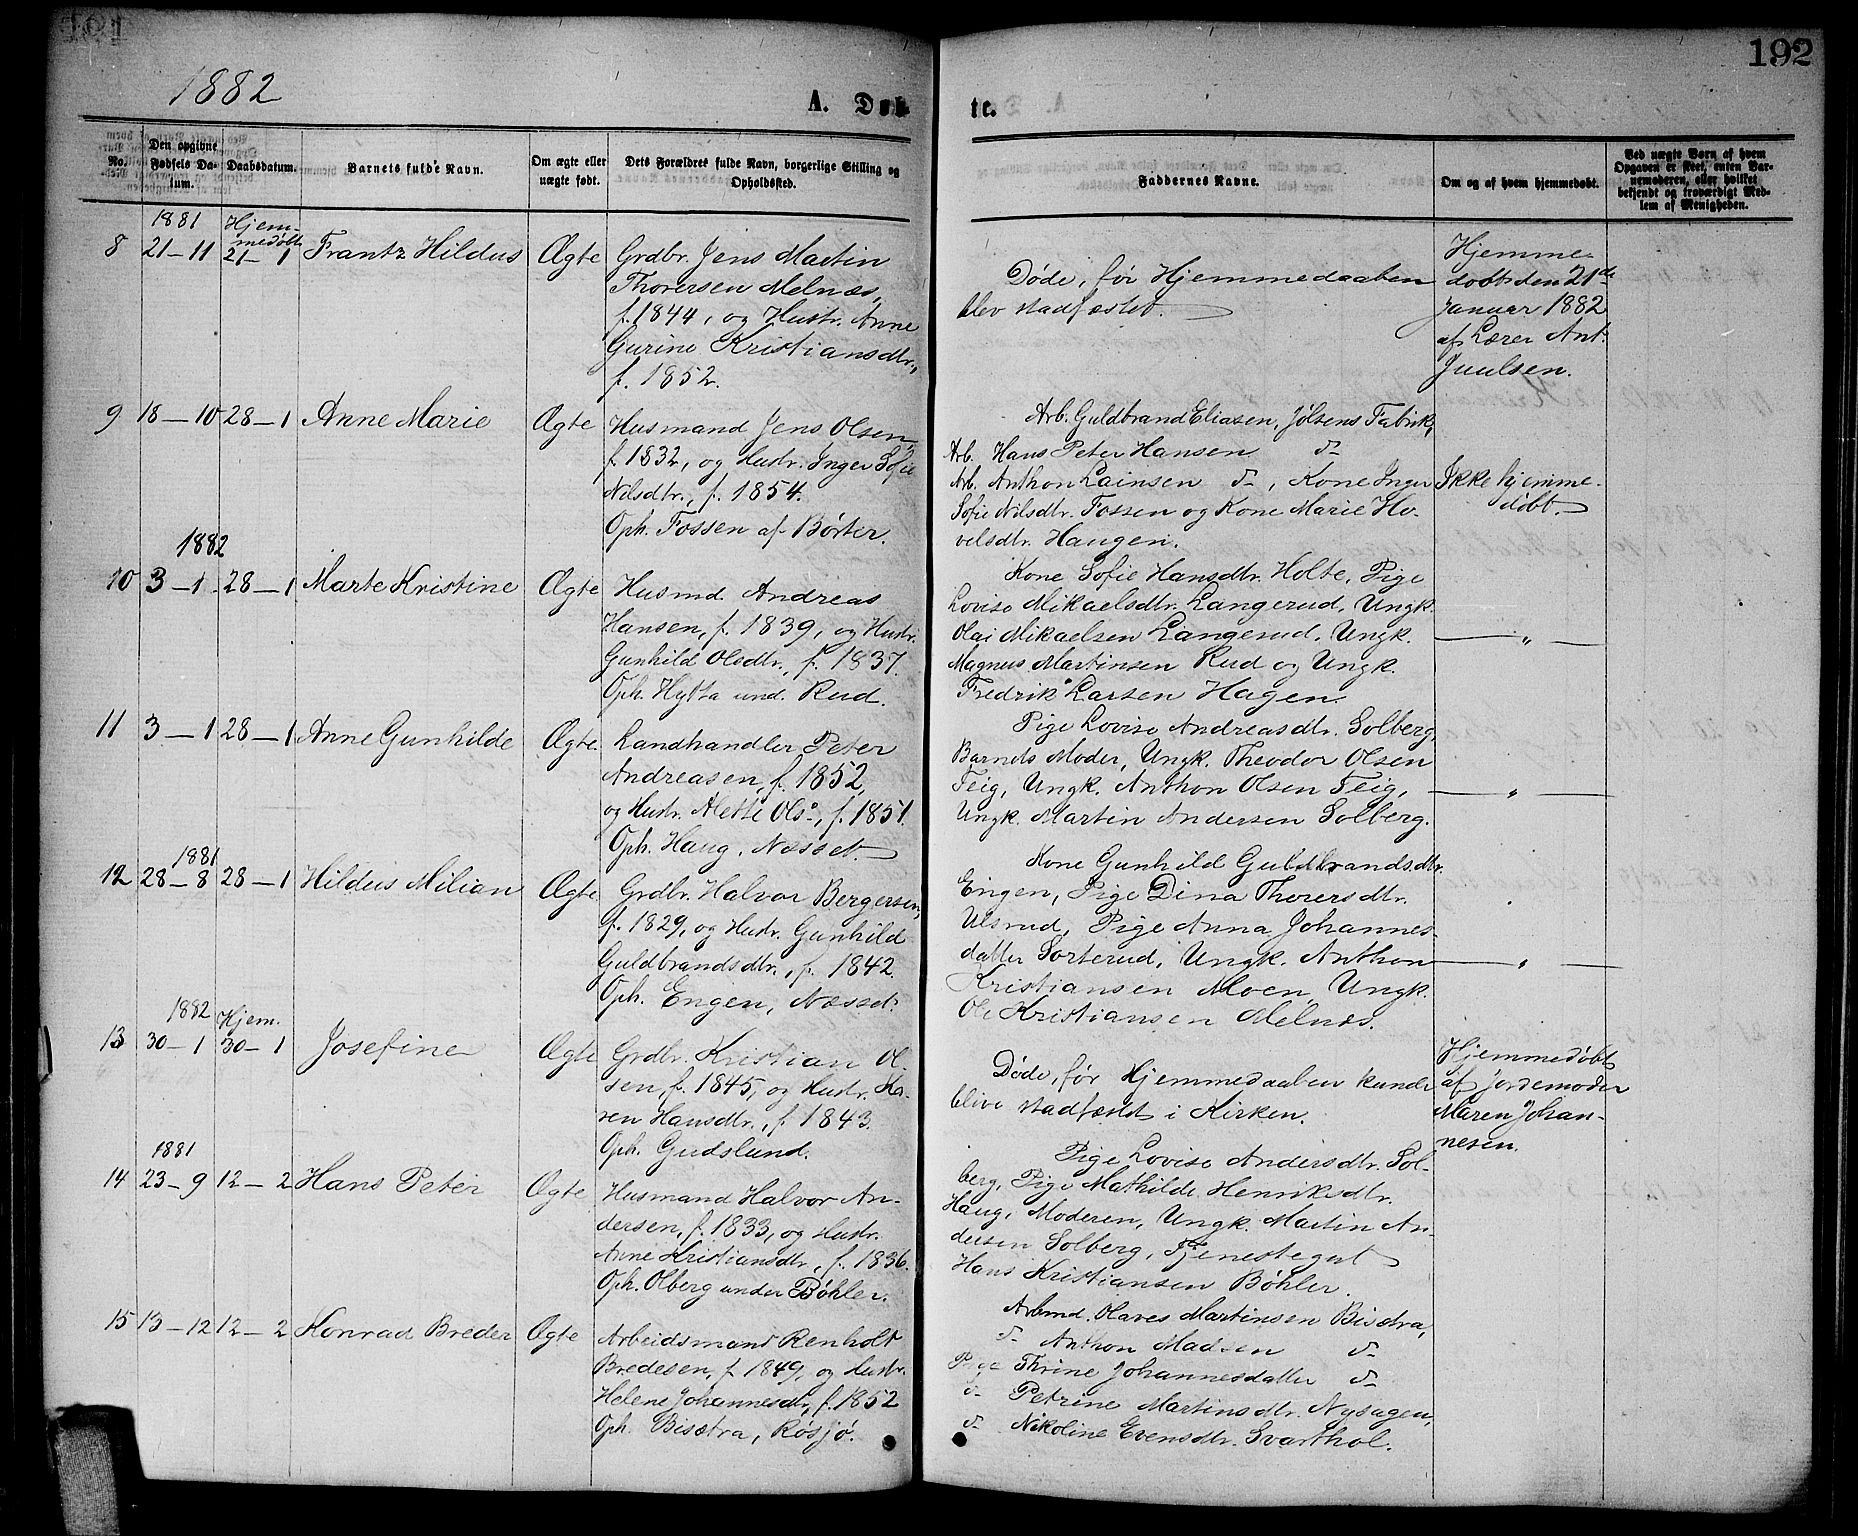 192
1882
A. Døbte.
No.
Den opgivne Fødsels Datum.
Daabsdatum.
Barnets fulde Navn.
Om ægte eller uægte født.
Dets Forældres fulde Navn, borgerlige Stilling og Opholdsted.
Faddernes Navne.
Om og af hvem hjemmedøbt.
Ved uægte Børn af hvem Opgaven er skeet, enten Barnemoderen, eller hvilket bekjendt og troværdigt Medlem af Menigheden.
1881
Hjemmedøbt
8 21–11 21–1 Frantz Hildus Ægte
Grdbr. Jens Martin
Thorersen Melnæs,
f. 1844, og Hustr. Anne
Gurine Kristiansdtr.,
f. 1852.
Døde, før Hjemmedaaben
blev stadfæstet.
Hjemme-
døbt den 21de
Januar 1882
af Lærer Ant.
Juulsen.
9 18–10 28–1 Anne Marie Ægte
Husmand Jens Olsen,
f. 1832, og Hustr. Inger Sofie
Nilsdtr., f. 1854.
Oph. Fossen af Børter.
Arb. Guldbrand Eliasen, Jølsens Fabrik,
Arb. Hans Peter Hansen d-
Arb. Anthon Lainsen d-, Kone Inger
Sofie Nilsdtr. Fossen og Kone Marie Ho-
velsdtr. Haugen.
Ikke hjemme-
døbt.
1882
10 3–1 28–1 Marte Kristine Ægte
Husmd. Andreas
Hansen, f. 1839, og Hustr.
Gunhild Olsdtr., f. 1837.
Oph. Hytta und. Rud.
Kone Sofie Hansdtr. Holte, Pige
Lovise Mikaelsdtr. Langerud, Ungk.
Olai Mikaelsen Langerud, Ungk.
Magnus Martinsen Rud og Ungk.
Fredrik Larsen Hagen.
— " —
11 3–1 28–1 Anne Gunhilde Ægte.
Landhandler Peter
Andreasen, f. 1852,
og Hustr. Alette Ols., f. 1851.
Oph. Haug, Næsset.
Pige Lovise Andreasdtr. Solberg,
Barnets Moder, Ungk. Theodor Olsen
Teig, Ungk. Anthon Olsen Teig,
Ungk. Martin Andersen Solberg.
— " —
1881
12 28–8 28–1 Hildus Milian Ægte
Grdbr. Halvor Bergersen,
f. 1829, og Hustr. Gunhild
Guldbrandsdtr., f. 1842.
Oph. Engen, Næsset.
Kone Gunhild Guldbrandsdtr.
Engen, Pige Dina Thorersdtr.
Ulsrud, Pige Anna Johannes-
datter Sorterud, Ungk. Anthon
Kristiansen Moen, Ungk.
Ole Kristiansen Melnæs.
— " —
1882
Hjem.
13 30–1 30–1 Josefine Ægte
Grdbr. Kristian Ol-
sen, f. 1845, og Hustr. Ka-
ren Hansdtr., f. 1843.
Oph. Gudslund.
Døde, før Hjemmedaaben kunde
blive stadfæstet i Kirken.
Hjemmedøbt
af Jordemoder
Maren Johan-
nesen.
1881
14 23–9 12–2 Hans Peter Ægte
Husmand Halvor An-
dersen, f. 1833, og Hustr.
Anne Kristiansdtr., f. 1836.
Oph. Olberg under Bøhler.
Pige Lovise Andersdtr. Sol-
berg, Pige Mathilde Henriksdtr.
Haug, Moderen, Ungk. Martin An-
dersen Solberg, Tjenestegut
Hans Kristiansen Bøhler.
15 13–12 12–2 Konrad Breder Ægte
Arbeidsmand Renholt
Bredesen, f. 1849, og Hustr.
Helene Johannesdtr, f. 1852
Oph. Bisætra, Røsjø.
Arbmd. Olaves Martinsen Bisætra,
d- Anthon Madsen d-
Pige Thrine Johannesdatter d-
d- Petrine Martinsdtr. Nysagen,
d- Nikoline Evensdtr. Svarthol.